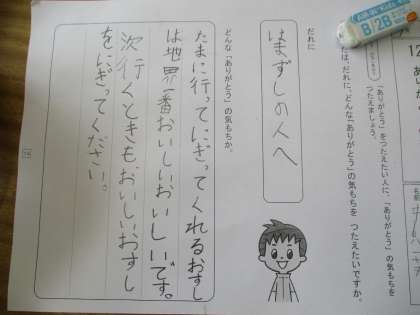 「ありがとう」をつたえたい人に、「ありがとう」の気もちを
つたえましょう。
だれに、どんな「ありがとう」の気もちを つたえたいですか。
だれに
はまずしの人へ
どんな「ありがとう」の気もちか。
たまに行ってにぎってくれるおすし
は地界一番おいしいおいしいです。
次行くときも、おいしいおすし
をにぎってください。